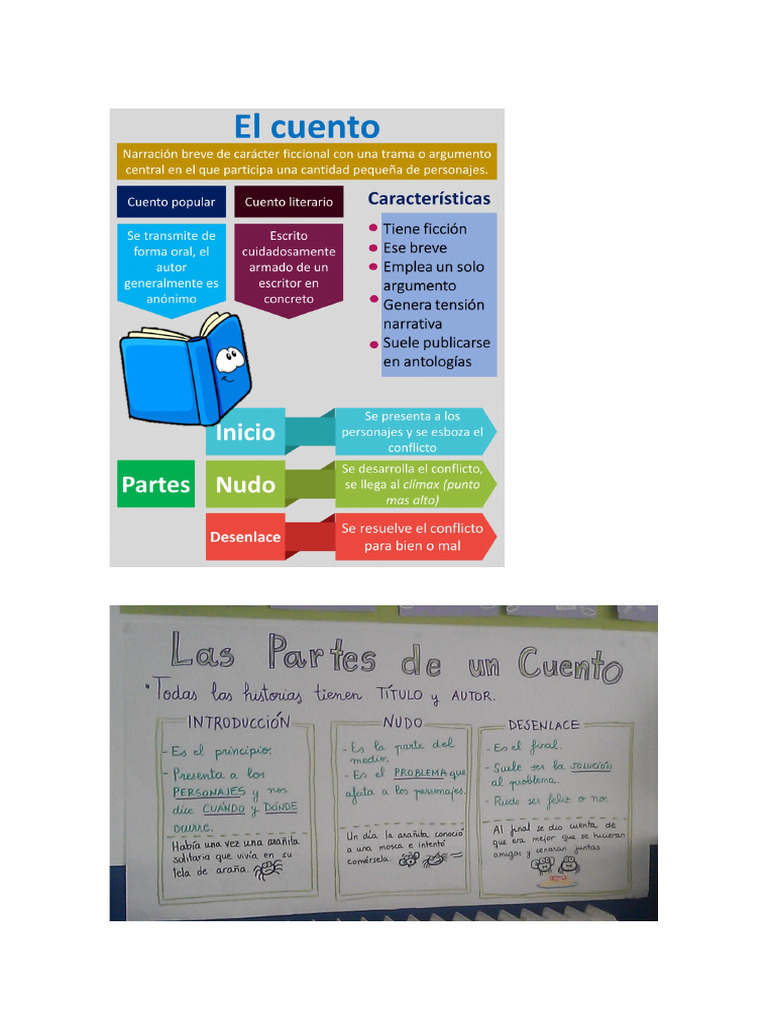 El cuento
Narración breve de carácter ficcional con una trama o argumento
central en el que participa una cantidad pequeña de personajes.
Cuento popular
Se transmite de
forma oral, el
autor
generalmente es
anónimo
Cuento literario
Escrito
cuidadosamente
armado de un
escritor en
concreto
Características
Tiene ficción
Ese breve
Emplea un solo
argumento
Genera tensión
narrativa
Suele publicarse
en antologías
Partes
Inicio
Se presenta a los
personajes y se esboza el
conflicto
Nudo
Se desarrolla el conflicto,
se llega al clímax (punto
mas alto)
Desenlace
Se resuelve el conflicto
para bien o mal
Las Partes de un Cuento
• Todas las historias tienen TÍTULO y AUTOR.
INTRODUCCIÓN
- Es el principio.
- Presenta a los
PERSONAJES y nos
dice CUÁNDO y DÓNDE
ocurre.
Había una vez una arañita
solitaria que vivía en su
tela de araña.
NUDO
- Es la parte del
medio.
- Es el PROBLEMA que
afecta a los personajes.
Un día la arañita conoció
a una mosca e intentó
comérsela.
DESENLACE
- Es el final.
- Suele ser la SOLUCIÓN
al problema.
- Puede ser feliz o no.
Al final se dio cuenta de
que era mejor que se hicieran
amigos y cenaran juntas